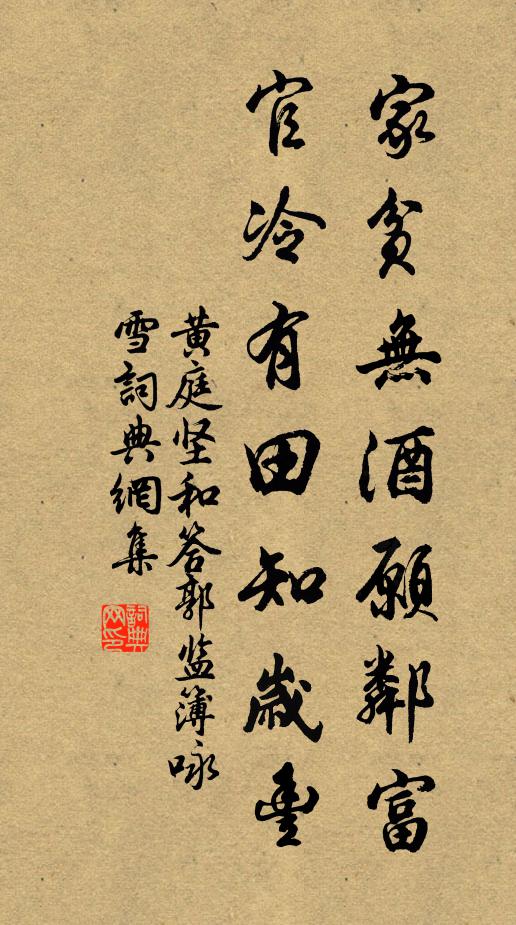 家貧無酒願鄰富
官冷有田知歲豊
黄庭坚和答郭监簿咏
雪詞典網集
詞典网印